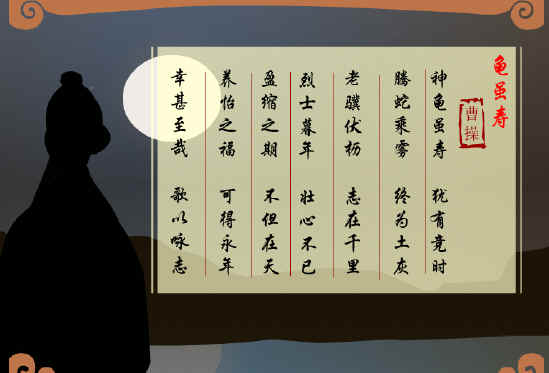 龟虽寿
曹操
神龟虽寿 犹有竟时
腾蛇乘雾 终为土灰
老骥伏枥 志在千里
烈士暮年 壮心不已
盈缩之期 不但在天
养怡之福 可得永年
幸甚至哉 歌以咏志